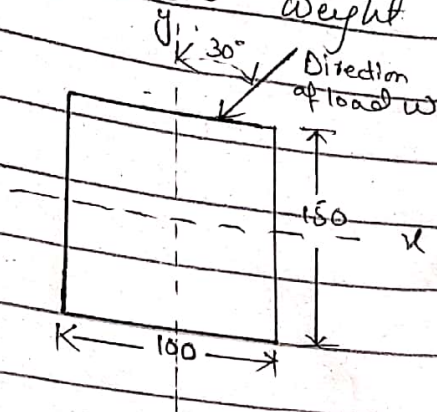 Weight
y
30°
Direction
of load W
150
x
100